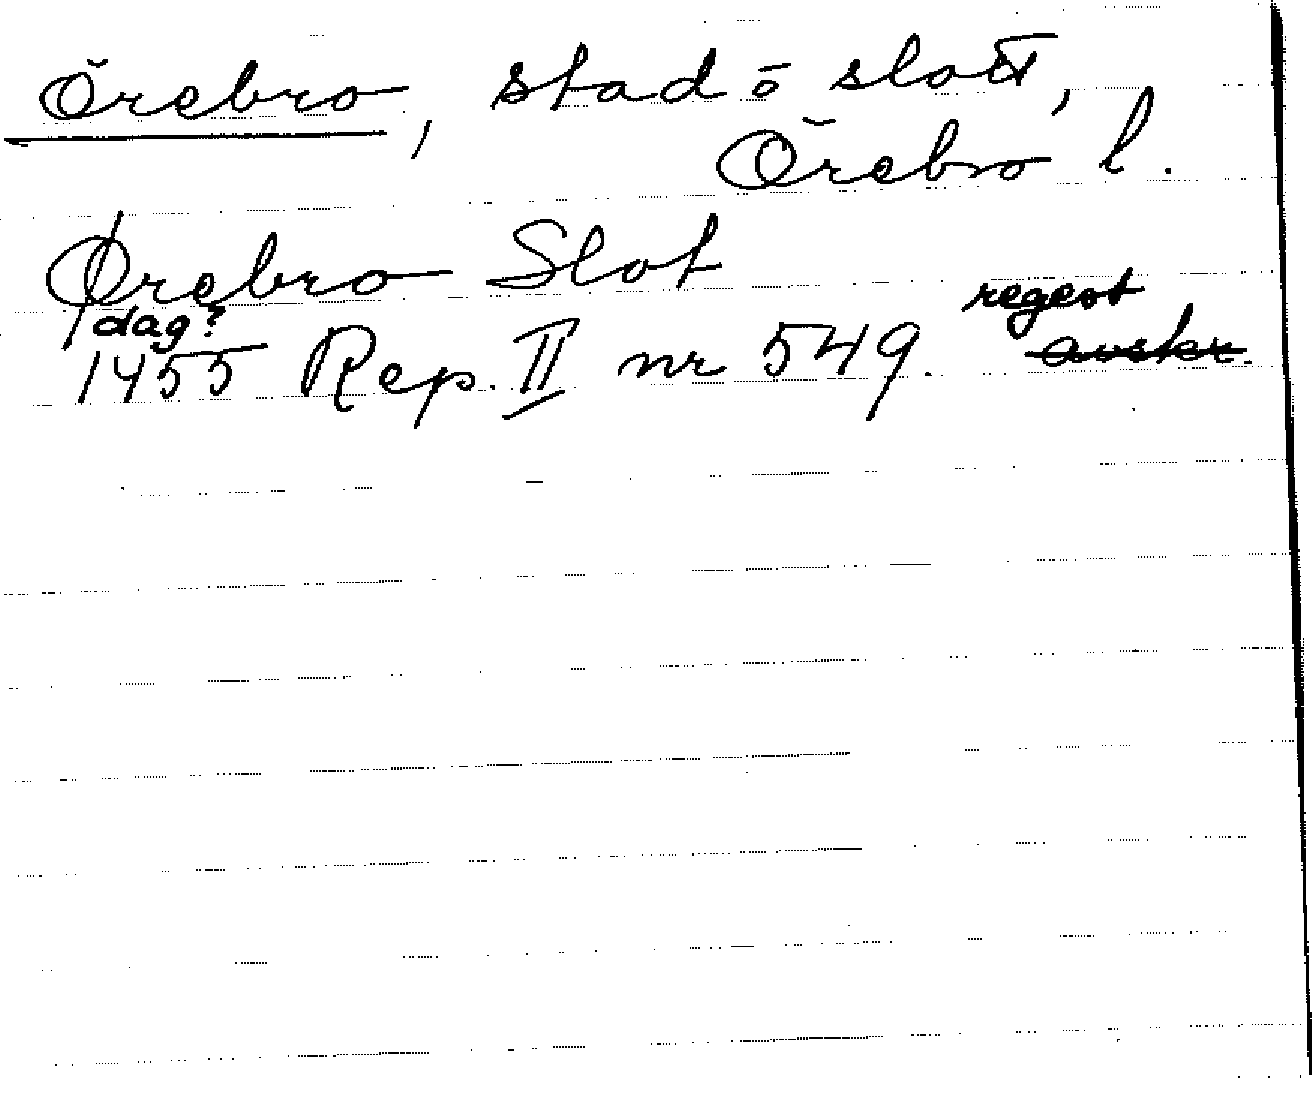 Örebro, stad o slott,
Örebro l.
Ørebro Slot
dag? regest
1455 Rep. II nr 549. avskr.